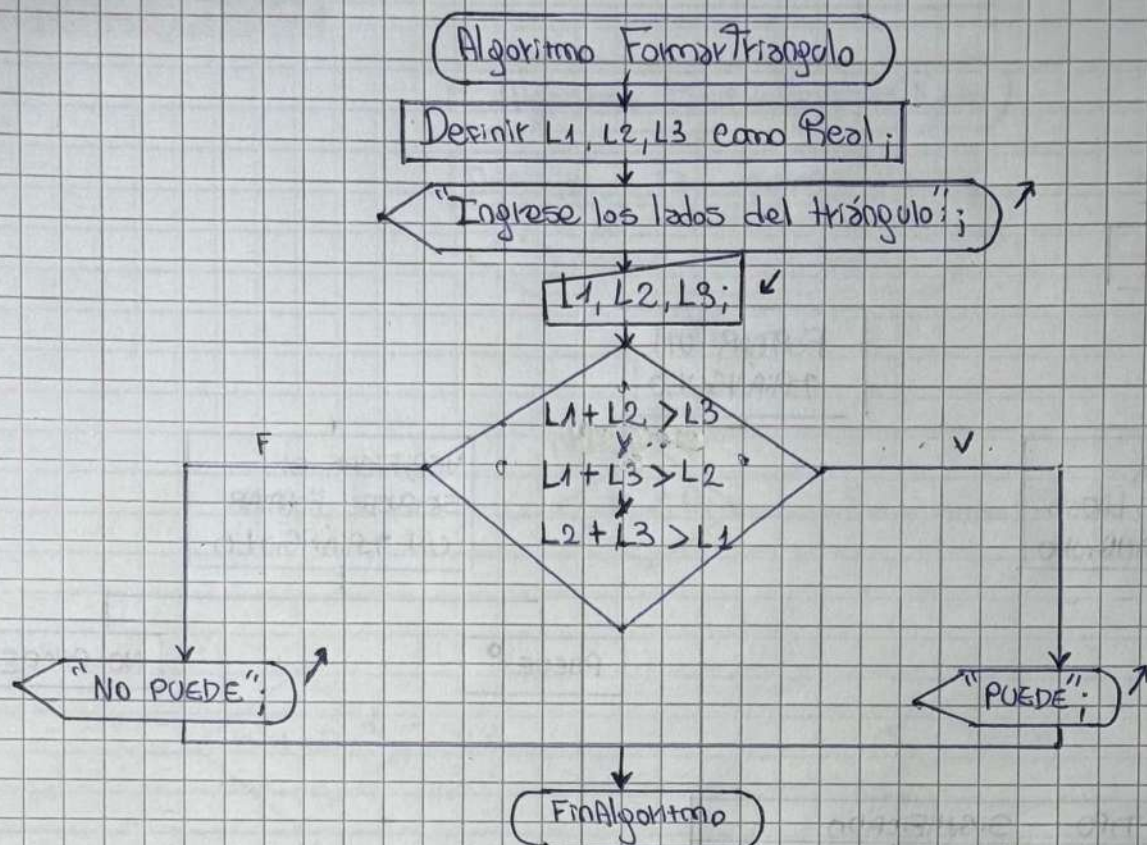 Algoritmo FormarTriangulo
Definir L1, L2, L3 como Real;
"Ingrese los lados del triángulo";
L1, L2, L3;
L1 + L2 > L3
Y
F
V
L1 + L3 > L2
Y
L2 + L3 > L1
"NO PUEDE";
"PUEDE";
FinAlgoritmo